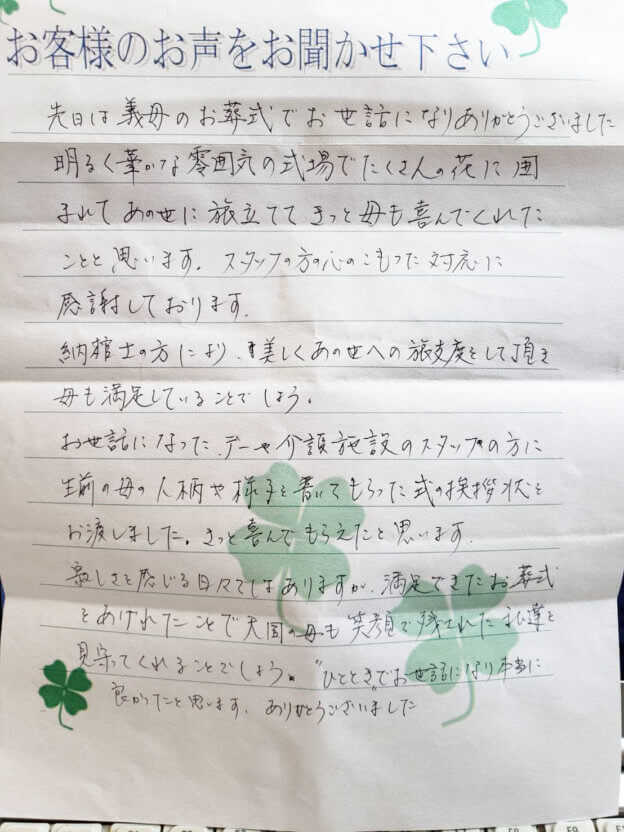 お客様のお声をお聞かせ下さい
先日は義母のお葬式でお世話になりありがとうございました
明るく華かな雰囲気の式場でたくさんの花に囲
まれてあの世に旅立ててきっと母も喜んでくれた
ことと思います。スタッフの方の心のこもった対応に
感謝しております。
納棺士の方により、美しくあの世への旅支度をして頂き
母も満足していることでしょう。
お世話になった、デーや介護施設のスタッフの方に
生前の母の人柄や様子を書いてもらった式の挨拶状を
お渡しました。きっと喜んでもらえたと思います。
寂しさを感じる日々ではありますが、満足できたお葬式
をあげれたことで天国の母も笑顔で残された私達を
見守ってくれることでしょう。"ひととき"でお世話になり本当に
良かったと思います。ありがとうございました